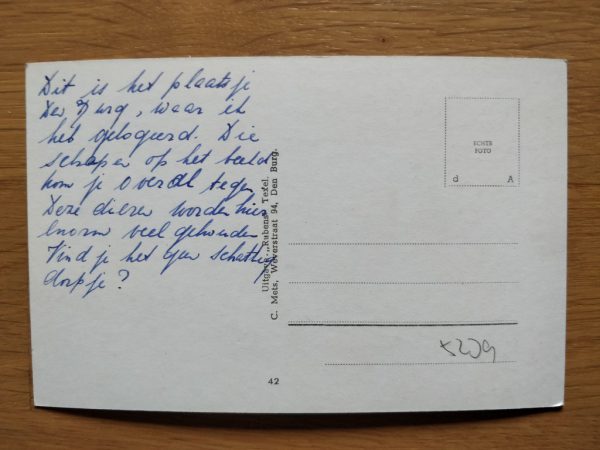 Dit is het plaatsje
Den Burg, waar ik
heb gelogeerd. Die
schapen op het beeld
kom je overal tegen
Deze dieren worden hier
enorm veel gehouden
Vind je het geen schattig
dorpje?
Uitgave „Rubens" Texel.
C. Mets, Weverstraat 94, Den Burg.
ECHTE
FOTO
d A
42